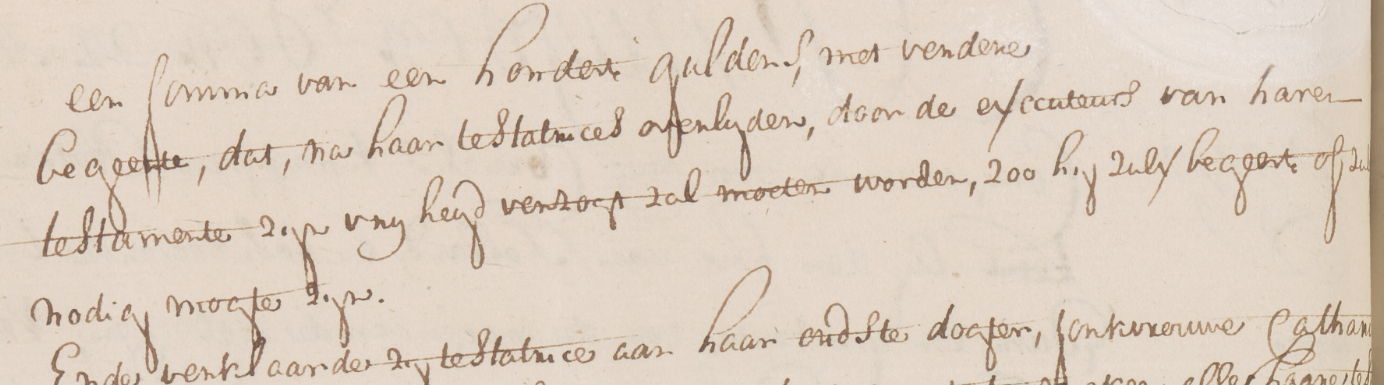 een somma van een hondert guldens, met verdere
begeerte, dat, na haar testatrices overlyden, door de executeurs van haren
testamente zijn vryheyd verzogt zal moeten worden, zoo hij zulx begeert of zul
nodig mogte zijn.
Ende verklaarde zij testatrice aan haar oudste dogter, Jonkvrouwe Cathar
alle haare